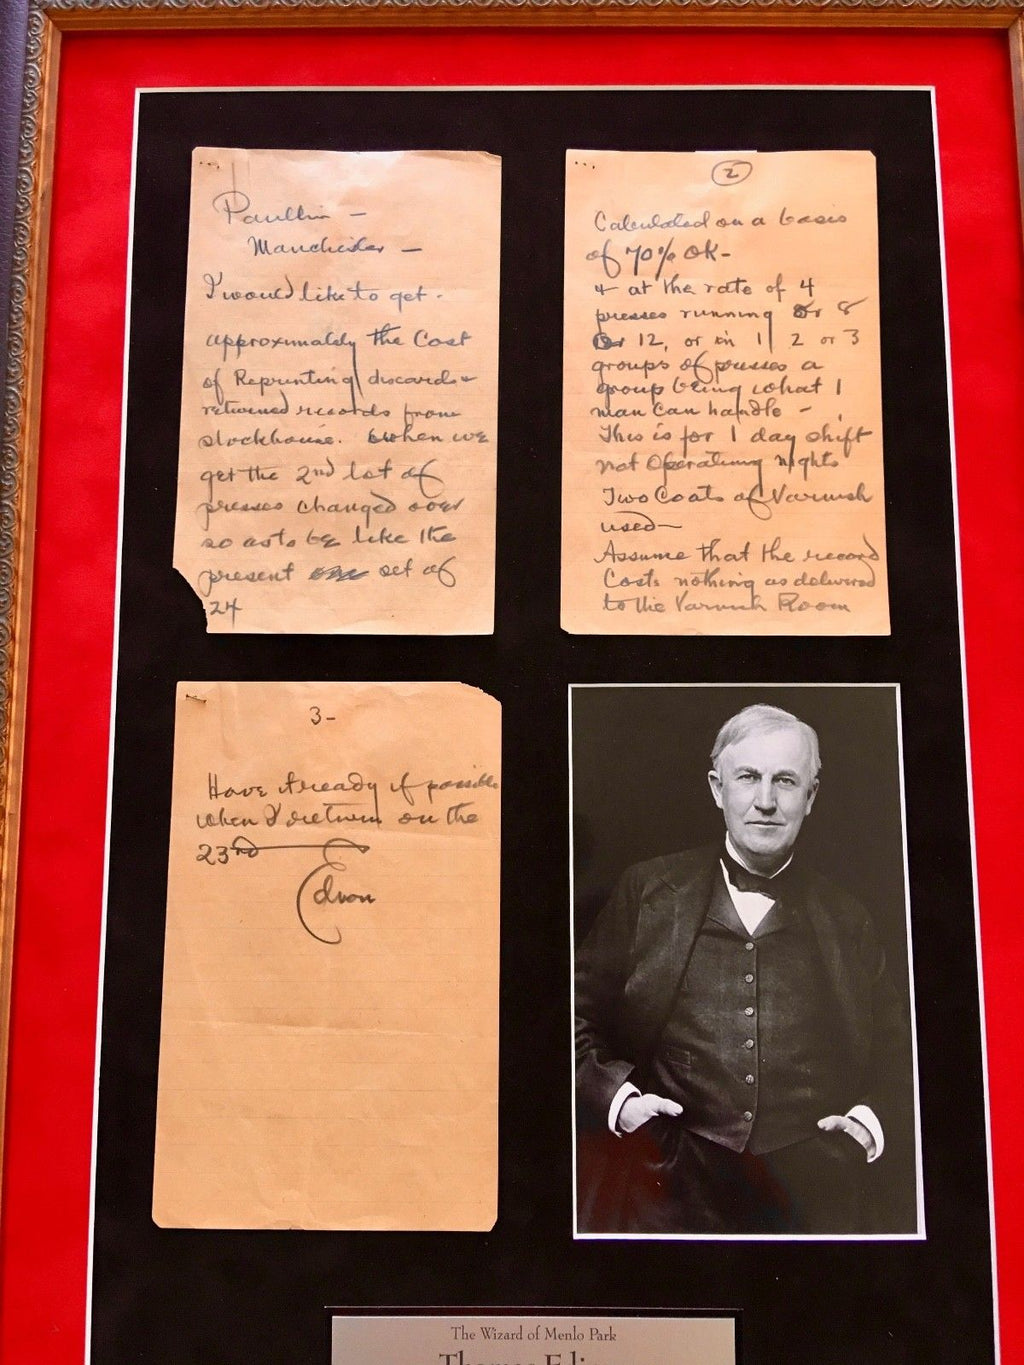 Paullin —
Manchester —
I would like to get.
approximately the Cost
of Reprinting discards &
returned records from
stockhouse. When we
get the 2nd lot of
presses changed over
so as to be like the
present set of
24
2
Calculated on a basis
of 70% OK-
& at the rate of 4
presses running or 8
or 12, or in 1 2 or 3
groups of presses a
group being what 1
man can handle -
This is for 1 day shift
not operating nights
Two Coats of Varnish
used—
Assume that the record
Costs nothing as delivered
to the Varnish Room
3-
Have it ready if possible
when I return on the
23rd
Edison
The Wizard of Menlo Park